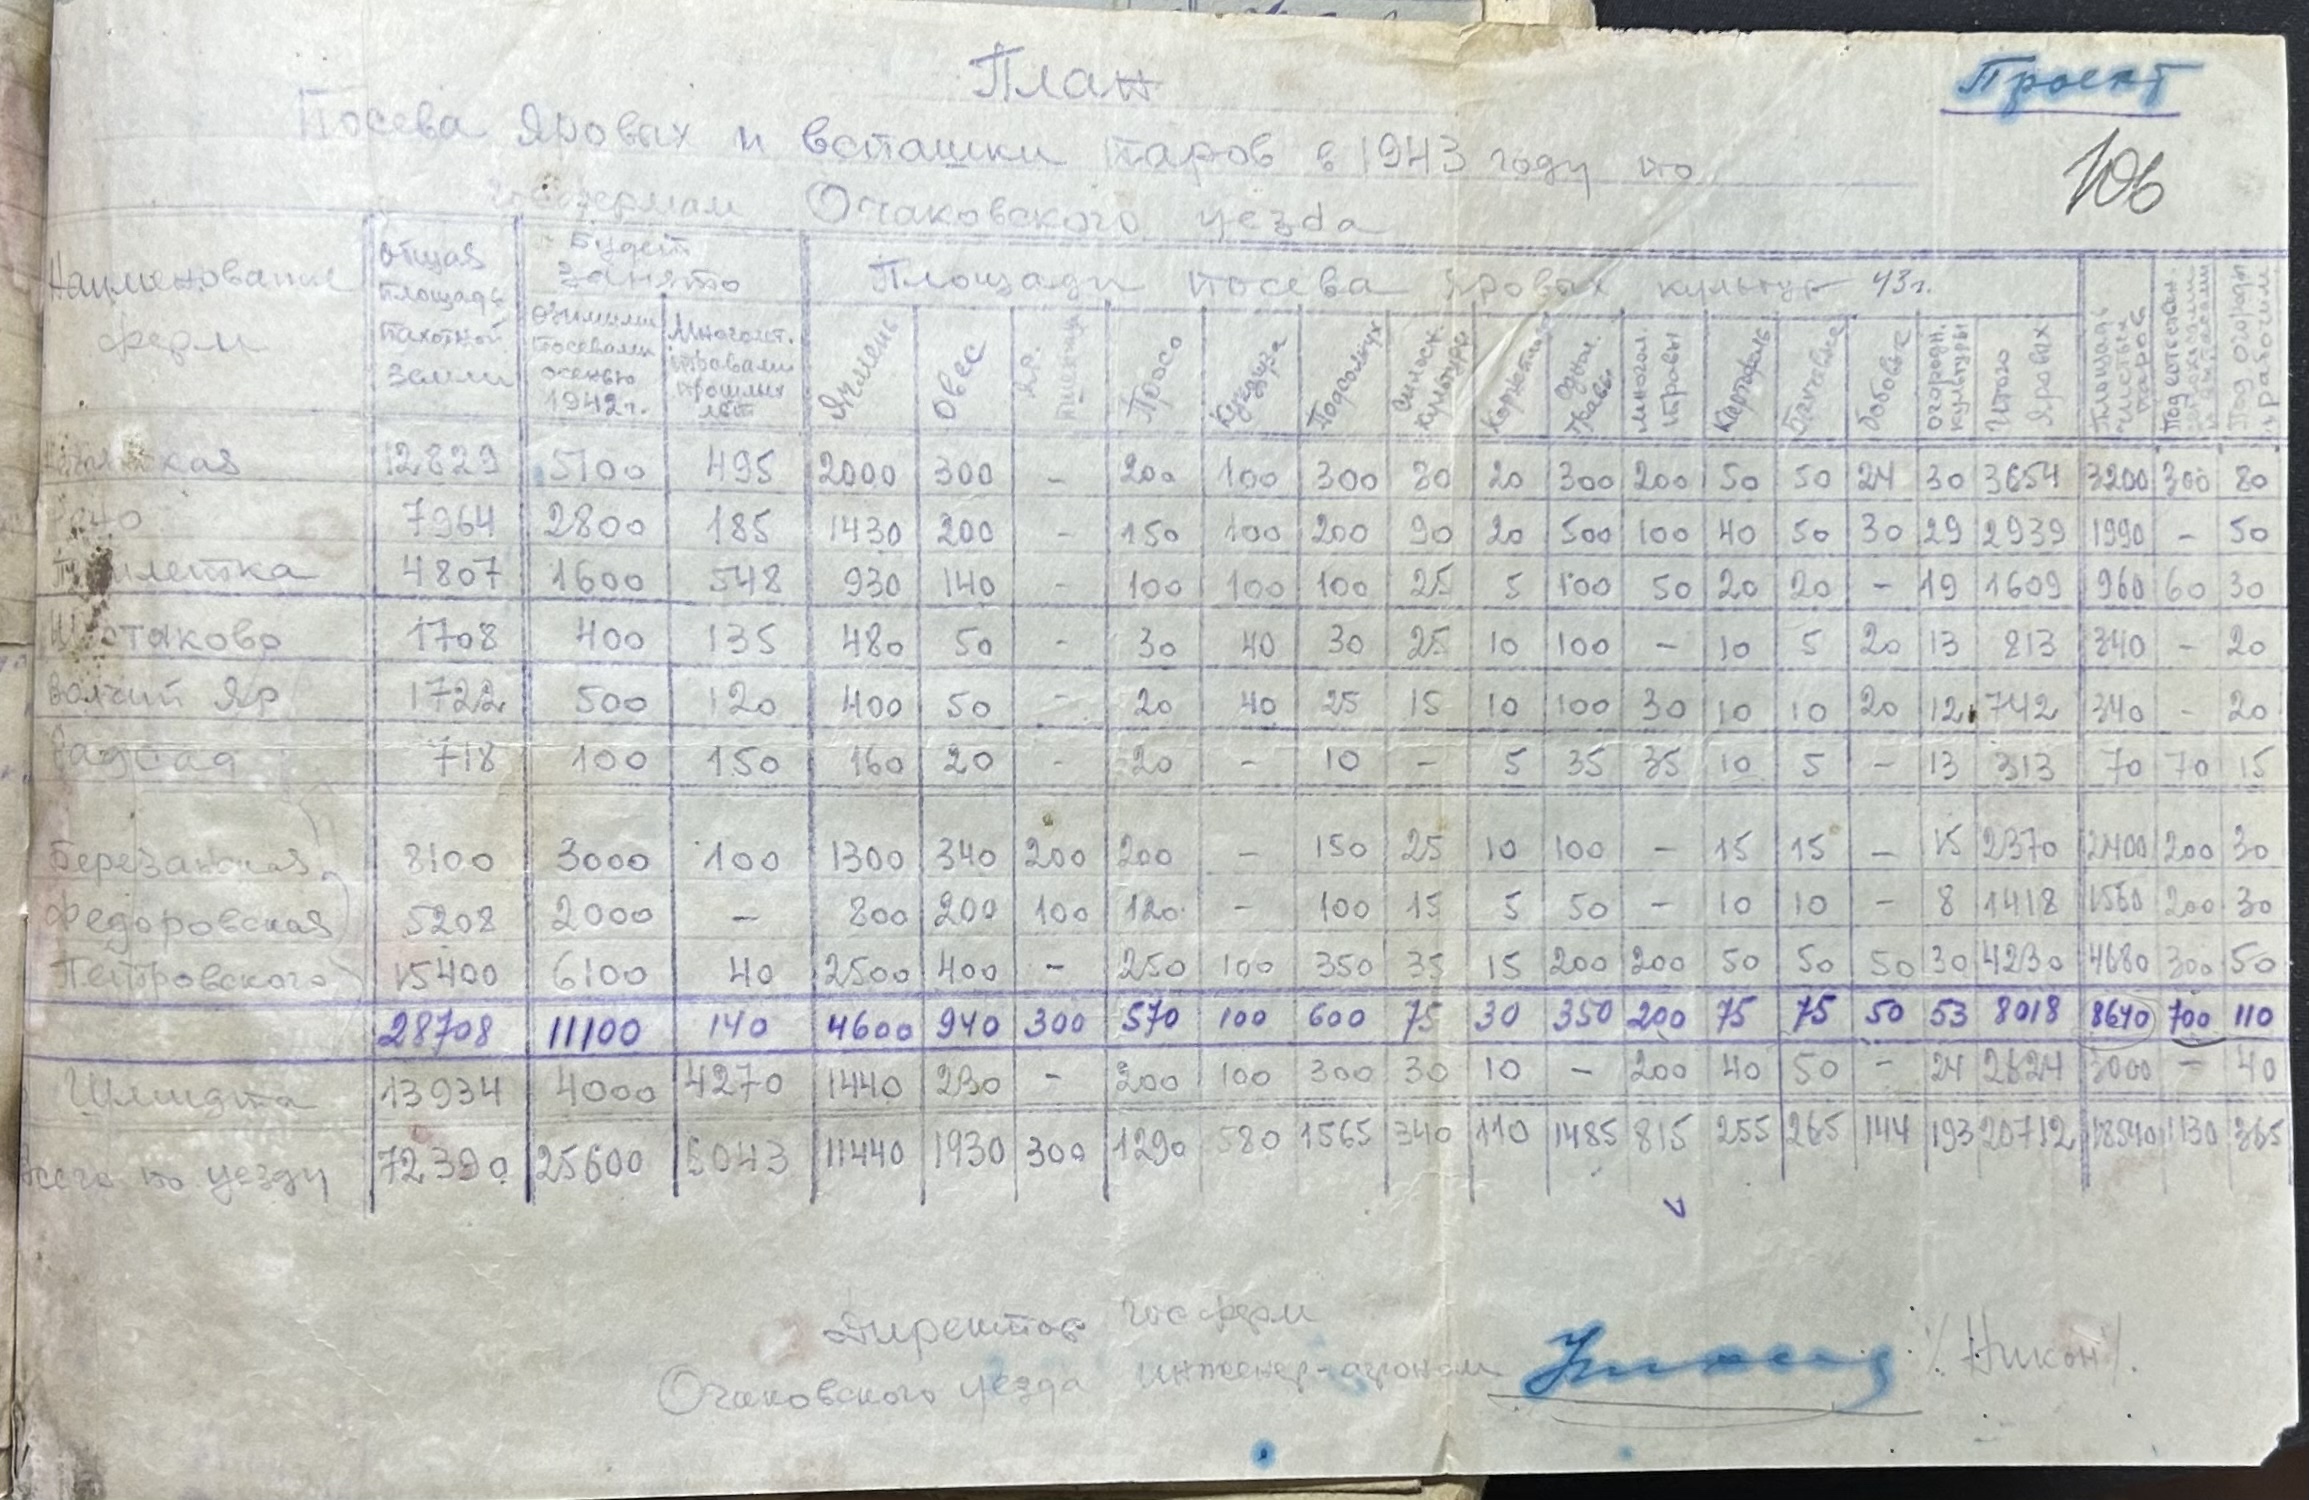 Проект
106
План
Посева яровых и вспашки паров в 1943 году по
госфермам Очаковского уезда
Наименование ферм | Общая площадь пахотной земли | Будет занято | Площади посева яровых культур 43 г. | Площадь чистых паров | Под | Под огороды рабочим
Озимыми посевами осенью 1942 г. | Многолет. травами прошлых лет | Ячмень | Овес | Яр. пшеница | Просо | Кукуруза | Подсолнух | Силосн. культуры | Корнеплоды | Однол. травы | Многол. травы | Картофель | Бахчевые | Бобовые | Огородн. культуры | Итого яровых
12829 5100 495 2000 300 - 200 100 300 80 20 300 200 50 50 24 30 3654 3200 300 80
7964 2800 185 1430 200 - 150 100 200 90 20 500 100 40 50 30 29 2939 1990 - 50
4807 1600 548 930 140 - 100 100 100 25 5 100 50 20 20 - 19 1609 960 60 30
1708 400 135 480 50 - 30 40 30 25 10 100 - 10 5 20 13 813 340 - 20
Волчий Яр 1722 500 120 400 50 - 20 40 25 15 10 100 30 10 10 20 12 742 340 - 20
Радсад 718 100 150 160 20 - 20 - 10 - 5 35 35 10 5 - 13 313 70 70 15
Березанская 8100 3000 100 1300 340 200 200 - 150 25 10 100 - 15 15 - 15 2370 2400 200 30
Федоровская 5208 2000 - 800 200 100 120 - 100 15 5 50 - 10 10 - 8 1418 1560 200 30
Петровского 15400 6100 40 2500 400 - 250 100 350 35 15 200 200 50 50 50 30 4230 4680 300 50
28708 11100 140 4600 940 300 570 100 600 75 30 350 200 75 75 50 53 8018 8640 700 110
Шмидта 13934 4000 4270 1440 230 - 200 100 300 30 10 - 200 40 50 - 24 2624 3000 - 40
Всего по уезду 72390 25600 6043 11440 1930 300 1290 580 1565 340 110 1485 815 255 265 144 193 20712 18540 1130 365
Директор госферм
Очаковского уезда инженер-агроном /Никон/.